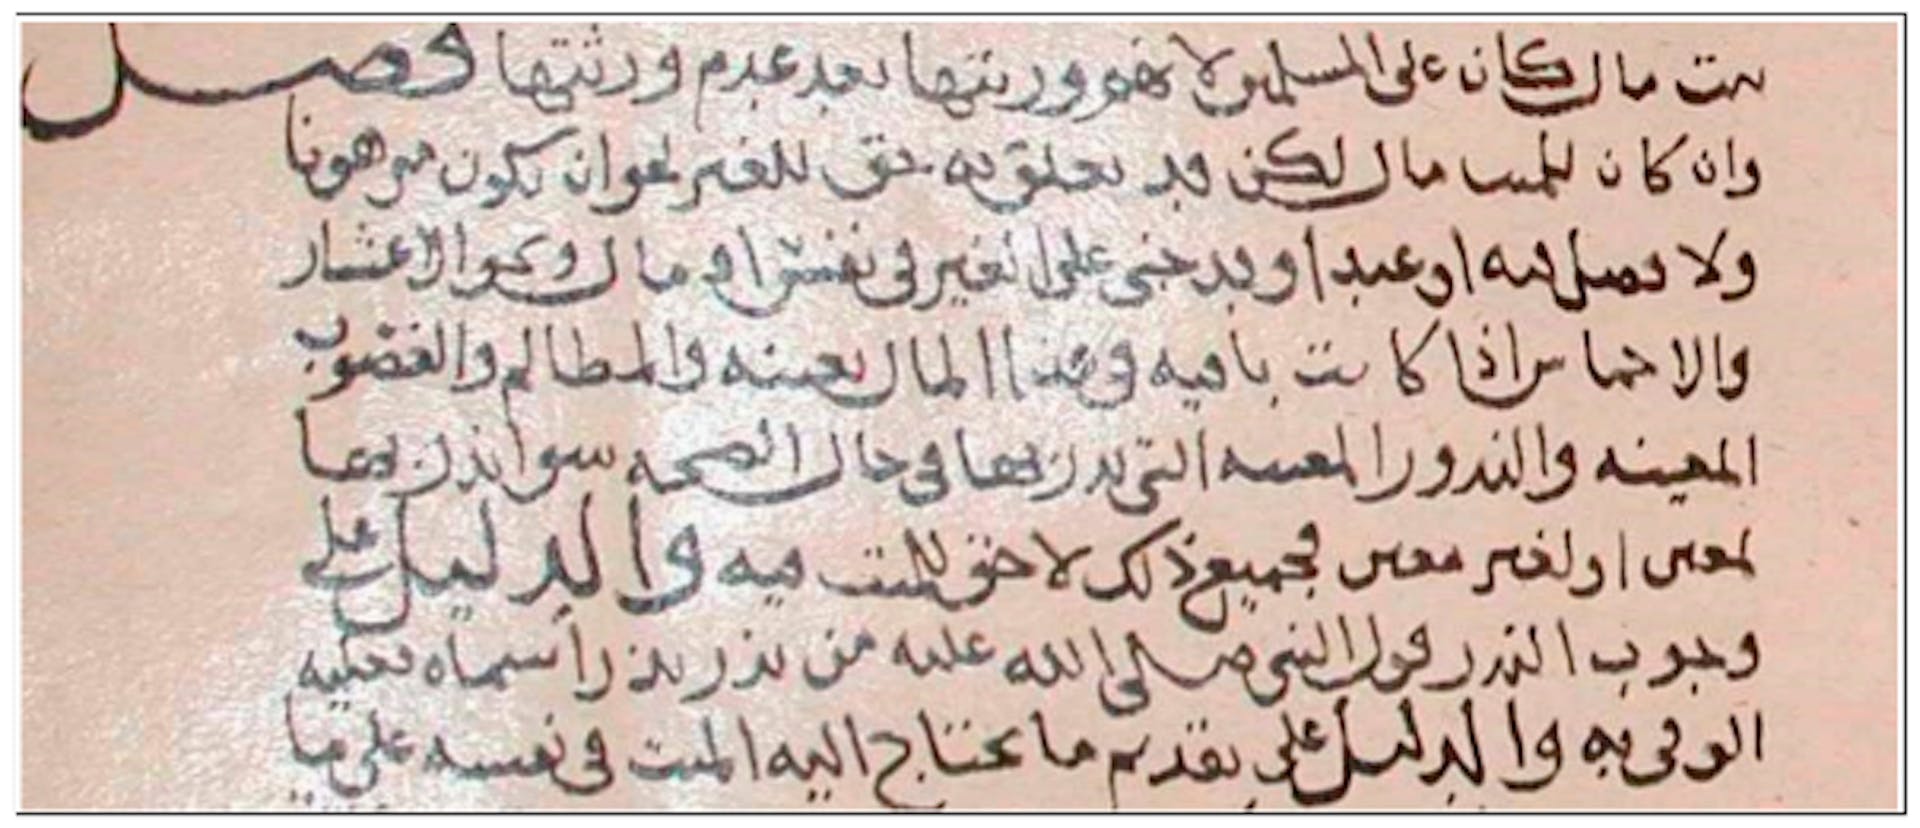 بيت مال كان على المسلمين لانهم ورثتها بعد عدم ورثتها فصل
وان كان للميت مال لكن قد تعلق به حق للغير نحو ان يكون مرهونا
ولا فضل فيه او عبدا وقد جنى على الغير في نفس او مال ونحو الاعشار
والاخماس اذا كانت باقيه في هذا المال بعينه والمظالم والغصوب
المعينه والنذور المعينه التي نذر بها في حال الصحه سوا نذر بها
لمعين او لغير معين فجميع ذلك لا حق للميت فيه والدليل على
وجوب النذر قول النبي صلى الله عليه من نذر نذرا سماه فعليه
الوفى به والدليل على تقديم ما يحتاج اليه الميت في نفسه على ما